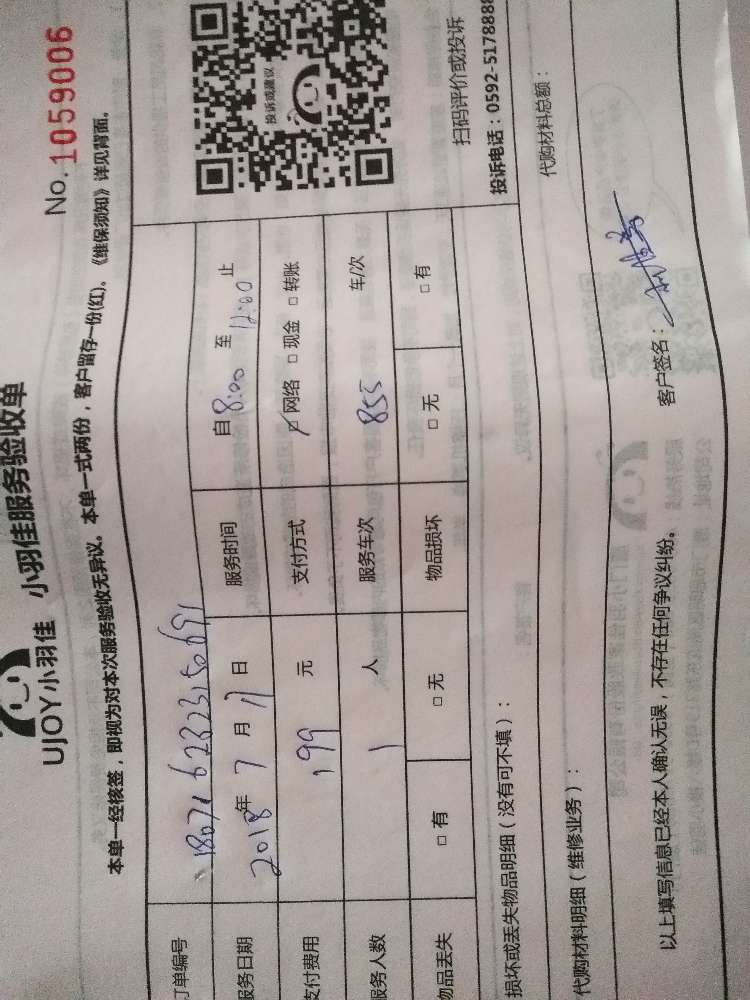 No.1059006
UJOY小羽佳 小羽佳服务验收单
本单一经核签，即视为对本次服务验收无异议。本单一式两份，客户留存一份(红)。《维保须知》详见背面。
订单编号
服务日期 2018年 7 月 17 日 服务时间 自 8:00 至 12:00 止
支付费用 199 元 支付方式 网络 □ 现金 □ 转账
服务人数 1 人 服务车次 855 车/次
物品丢失 □ 有 □ 无 物品损坏 □ 无 □ 有
投诉或建议
扫码评价或投诉
投诉电话：0592-5178888
损坏或丢失物品明细（没有可不填）：
代购材料明细（维修业务）： 代购材料总额：
以上填写信息已经本人确认无误，不存在任何争议纠纷。 客户签名：